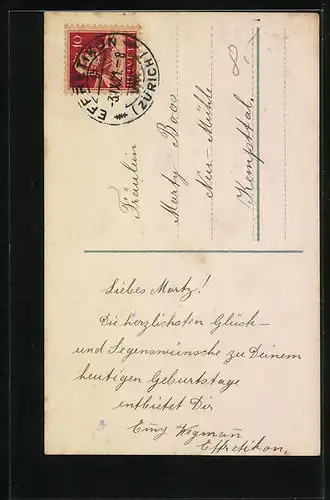 EFFRETIKON
(ZÜRICH)
10
HELVETIA
Fräulein
Marty Boos
Neu-Mühle
Kempttal.
Liebes Martz!
Die herzlichsten Glück-
und Segenswünsche zu Deinem
heutigen Geburtstage
entbietet Dir
Emy Wegmann
Effretikon.